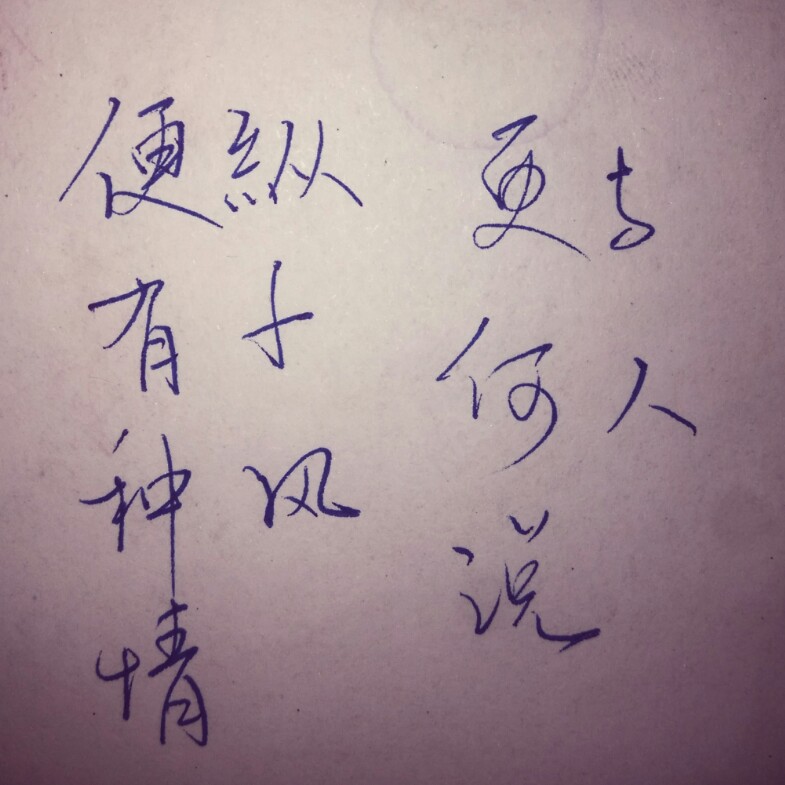 便纵
有千
种风
情
更与
何人
说